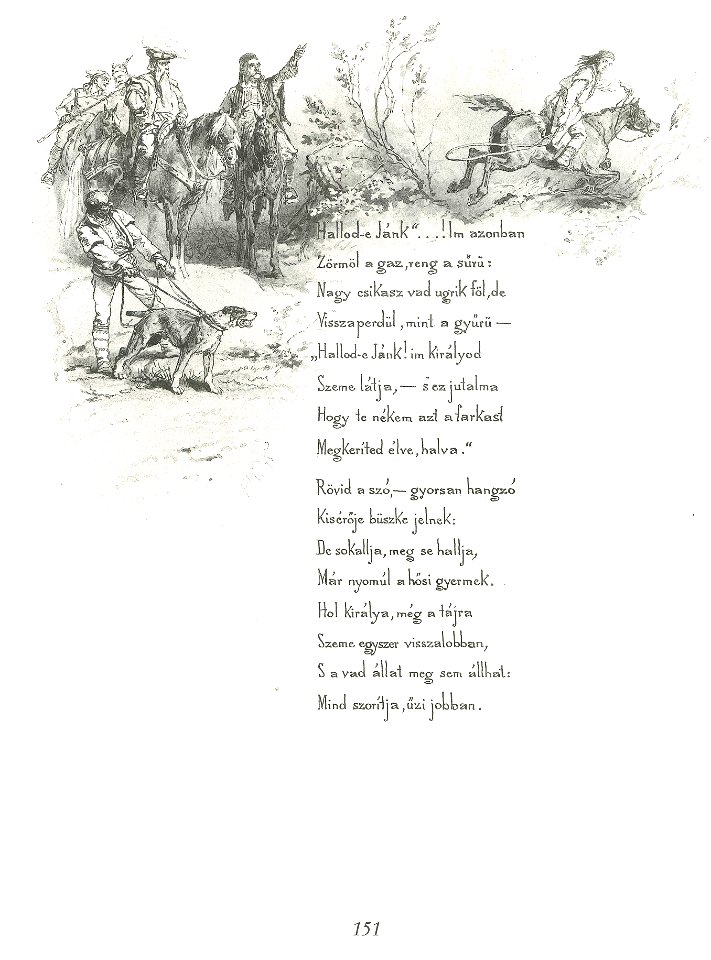 Hallod-e Jánk“...! Im azonban
Zörmöl a gaz, reng a sűrű:
Nagy csikasz vad ugrik föl, de
Visszaperdül, mint a gyűrű —
„Hallod-e Jánk! im királyod
Szeme látja, — s ez jutalma
Hogy te nékem azt a farkast
Megkeríted élve, halva.“
Rövid a szó, — gyorsan hangzó
Kisérője büszke jelnek:
De sokallja, meg se hallja,
Már nyomúl a hősi gyermek.
Hol királya, még a tájra
Szeme egyszer visszalobban,
S a vad állat meg sem állhat:
Mind szorítja, űzi jobban.
151